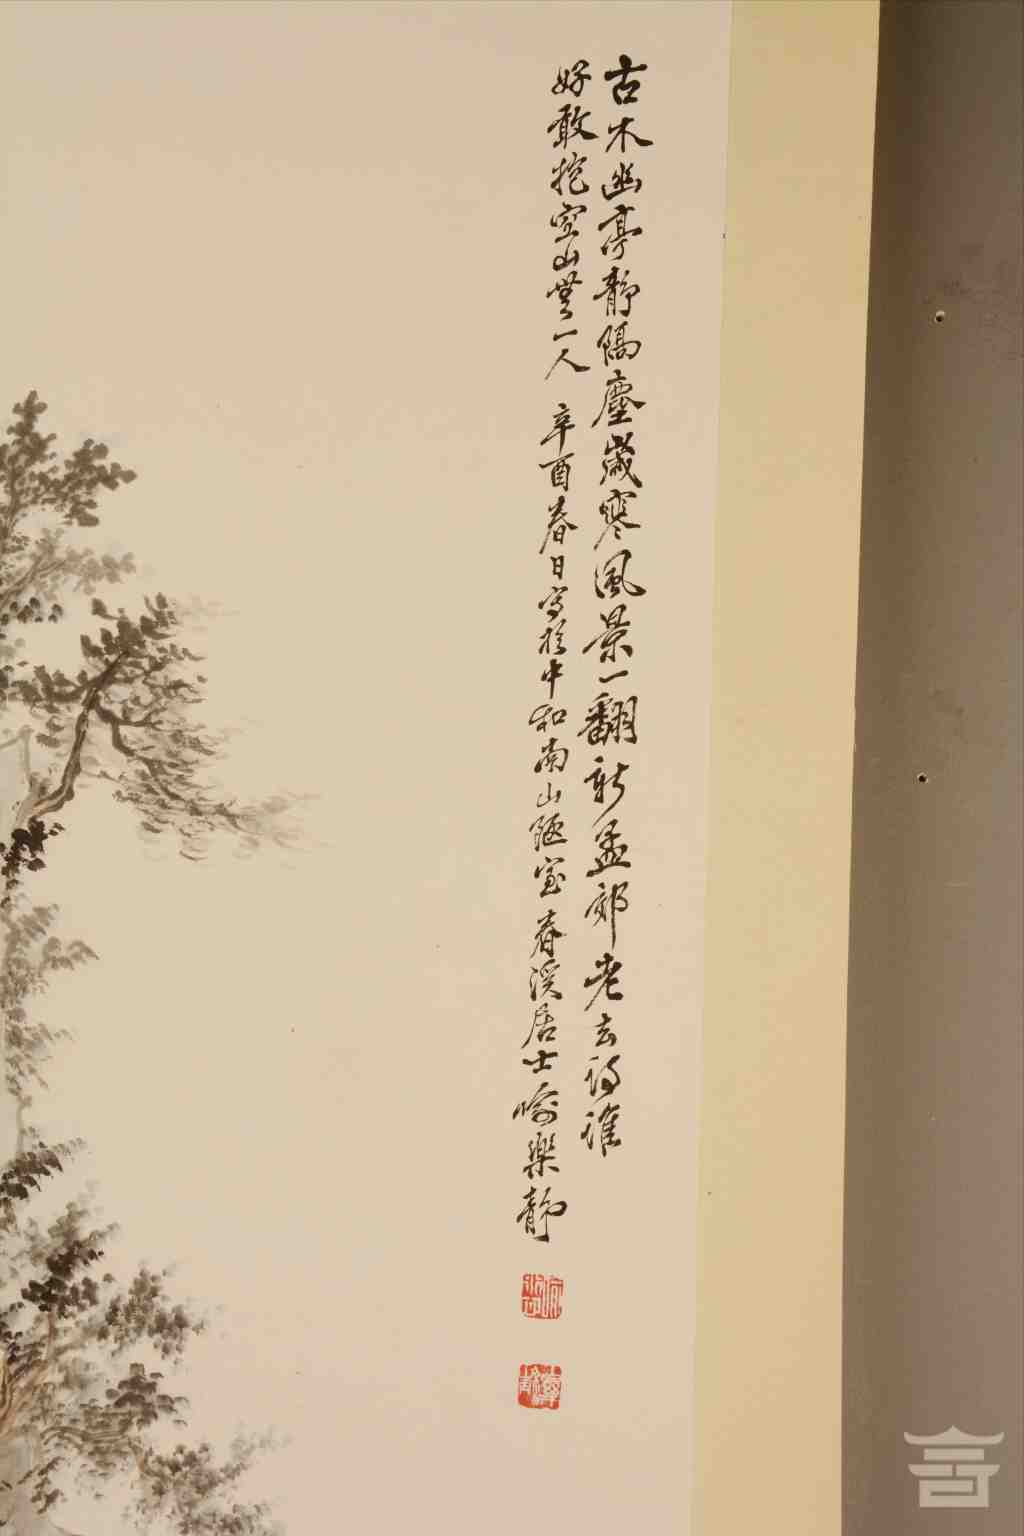 古木幽亭靜隔塵歲寒風景一翻新孟郊老去詩誰
好敢抱空山無一人 辛酉春日写於中和南山陋室春溪居士喻樂靜